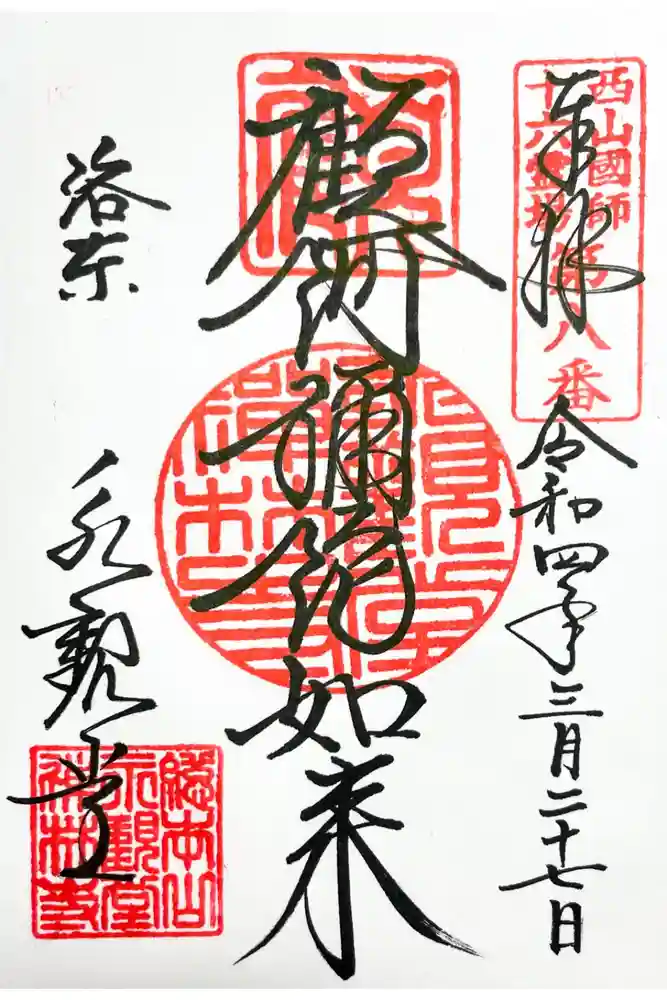 奉拝
西山國師
十六霊場
第八番
令和四年三月二十七日
顧阿彌陀如来
洛東
永觀堂
總本山
永觀堂
禅林寺